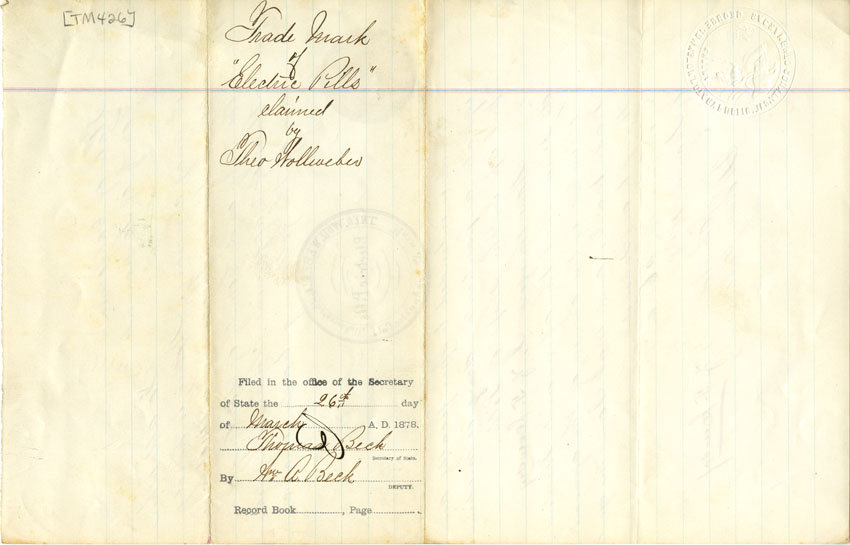 [TM426]
Trade Mark
of
"Electric Pills"
claimed
by
Theo Wollweber
Filed in the office of the Secretary
of State the 26th day
of March A. D. 1878.
Thomas Beck
Secretary of State.
By Wm A. Beck
DEPUTY.
Record Book , Page